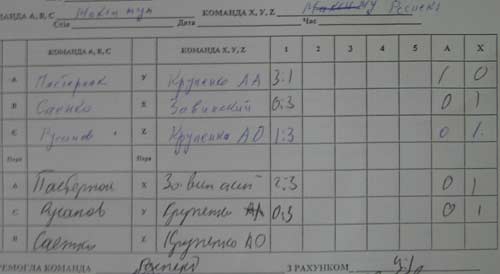 КОМАНДА А, В, С КОМАНДА X, Y, Z Респект
Стіл Дата Час
КОМАНДА А, В, С КОМАНДА X, Y, Z 1 2 3 4 5 А X
А Пастернак У Крупенко АА 3:1 1 0
В Саенко X Завинский 0:3 0 1
С Русанов Z Крупенко АО 1:3 0 1
Пара Пара
А Пастернак X Завинский 2:3 0 1
С Русанов У Крупенко АА 0:3 0 1
В Саенко Z Крупенко АО
ПЕРЕМОГЛА КОМАНДА Респект З РАХУНКОМ 4:1